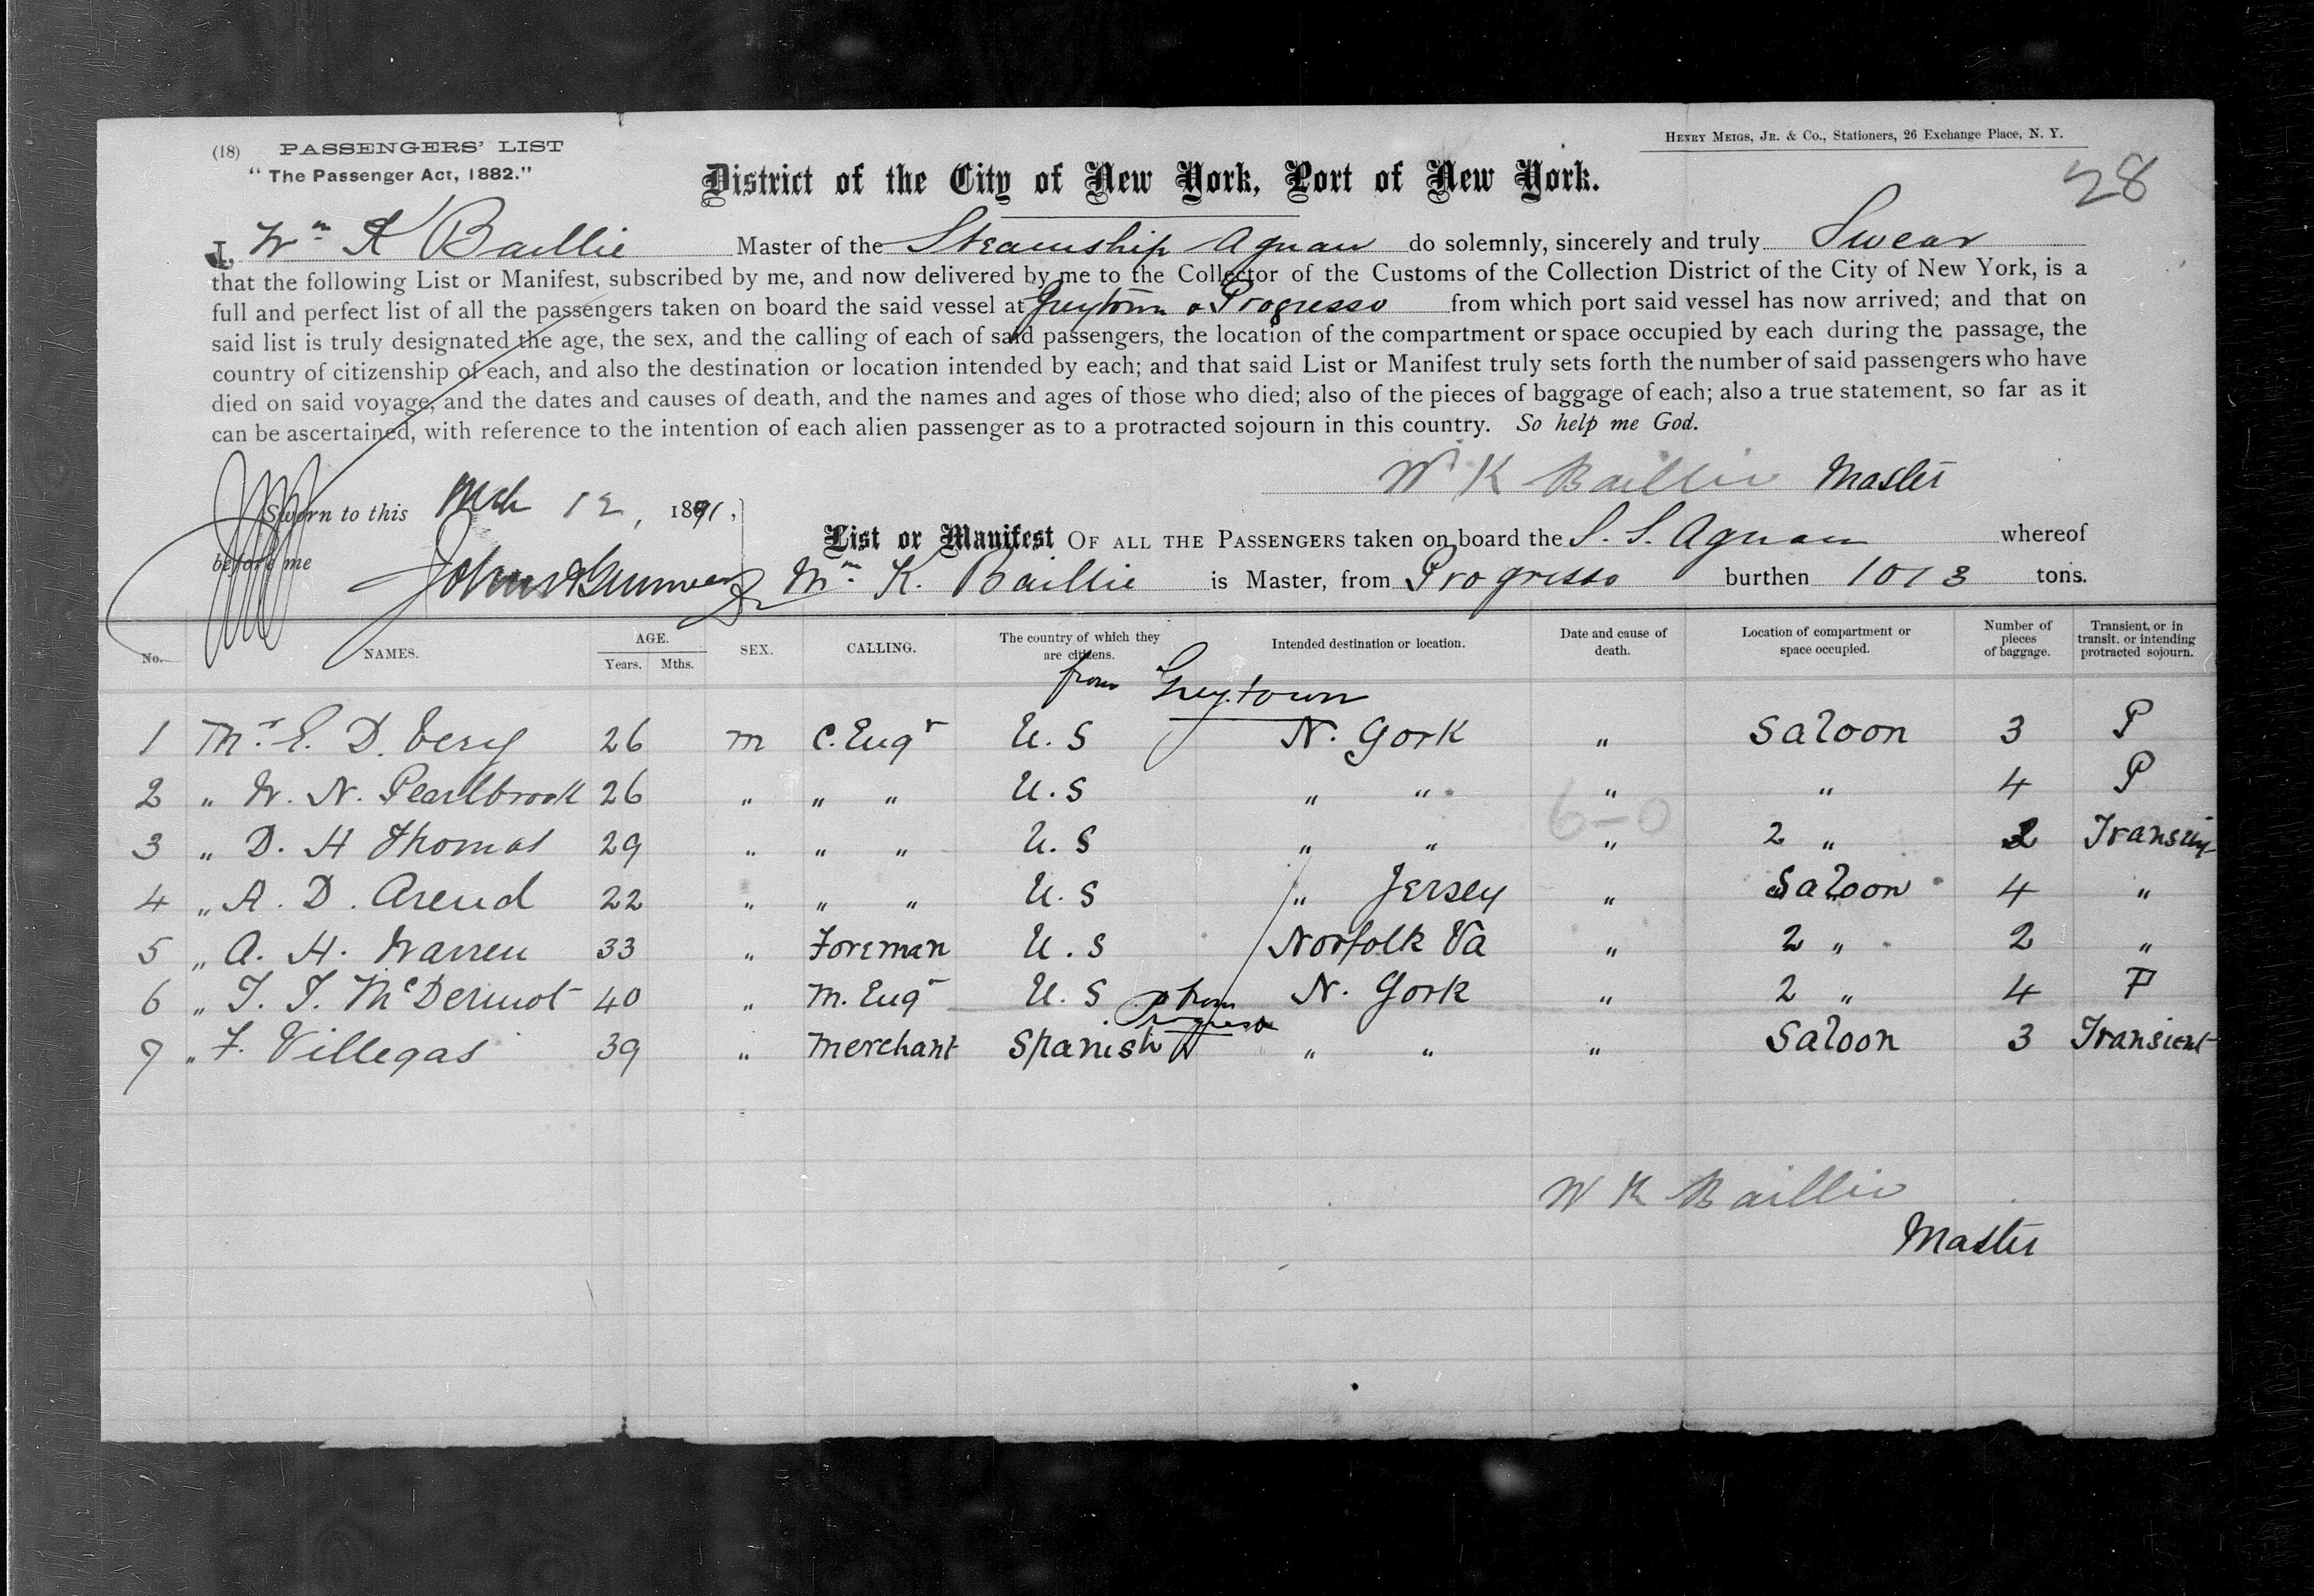 (18) PASSENGERS' LIST
"The Passenger Act, 1882."
HENRY MEIGS, JR. & CO., Stationers, 26 Exchange Place, N. Y.
28
District of the City of New York, Port of New York.
I, Wm K Baillie Master of the Steamship Aguan do solemnly, sincerely and truly Swear
that the following List or Manifest, subscribed by me, and now delivered by me to the Collector of the Customs of the Collection District of the City of New York, is a
full and perfect list of all the passengers taken on board the said vessel at Greytown & Progresso from which port said vessel has now arrived; and that on
said list is truly designated the age, the sex, and the calling of each of said passengers, the location of the compartment or space occupied by each during the passage, the
country of citizenship of each, and also the destination or location intended by each; and that said List or Manifest truly sets forth the number of said passengers who have
died on said voyage, and the dates and causes of death, and the names and ages of those who died; also of the pieces of baggage of each; also a true statement, so far as it
can be ascertained, with reference to the intention of each alien passenger as to a protracted sojourn in this country. So help me God.
Wm K Baillie Master
Sworn to this Mch 12, 1891,
before me
List or Manifest OF ALL THE PASSENGERS taken on board the S. S. Aguan whereof
Wm K. Baillie is Master, from Progresso burthen 1013 tons.
No. NAMES. AGE. Years. Mths. SEX. CALLING. The country of which they are citizens. Intended destination or location. Date and cause of death. Location of compartment or space occupied. Number of pieces of baggage. Transient, or in transit, or intending protracted sojourn.
from Greytown
1 Mr E. D. Very 26 m C. Engr U. S N. York " Saloon 3 P
2 " W. N. Pearlbrook 26 " " " U. S " " " " 4 P
6-0
3 " D. H Thomas 29 " " " U. S " " " 2 " 2 Transient
4 " A. D. Arend 22 " " " U. S " Jersey " Saloon 4 "
5 " A. H. Warren 33 " Foreman U. S Norfolk Va " 2 " 2 "
6 " T. T. McDermot 40 " M. Engr U. S N. York " 2 " 4 P
from Progreso
7 " F. Villegas 39 " Merchant Spanish " " " Saloon 3 Transient
W K Baillie
Master